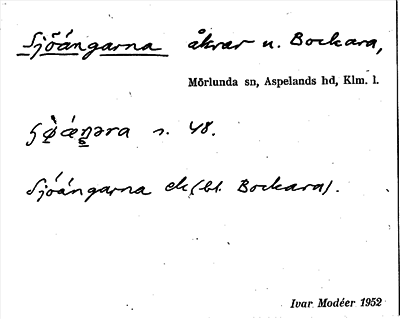 Sjöángarna åkrar u. Bockara,
Mörlunda sn, Aspelands hd, Klm. l.
s. 48.
Sjöángarna ek (bl. Bockara).
Ivar Modéer 1952